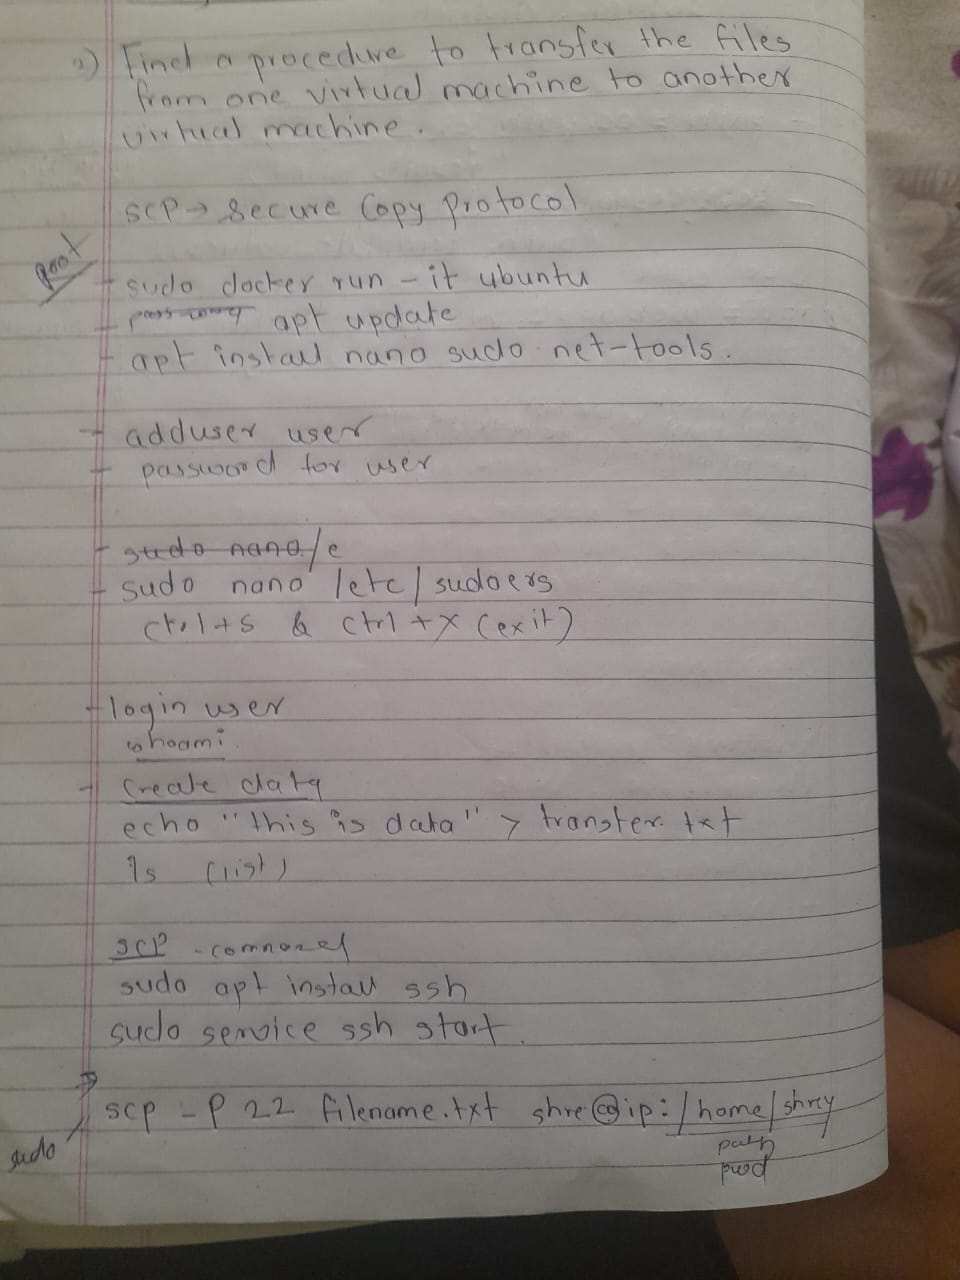 2) Find a procedure to transfer the files
from one virtual machine to another
virtual machine.
scp → Secure Copy Protocol
root
- sudo docker run -it ubuntu
- apt update
- apt install nano sudo net-tools.
- adduser user
- password for user
- sudo nano /e
- sudo nano /etc/sudoers
ctrl+s & ctrl+x (exit)
- login user
whoami
- Create data
echo "this is data" > transfer.txt
ls (list)
scp - command
sudo apt install ssh
sudo service ssh start.
scp -P 22 filename.txt shre@ip:/home/shrey
sudo
path
pwd